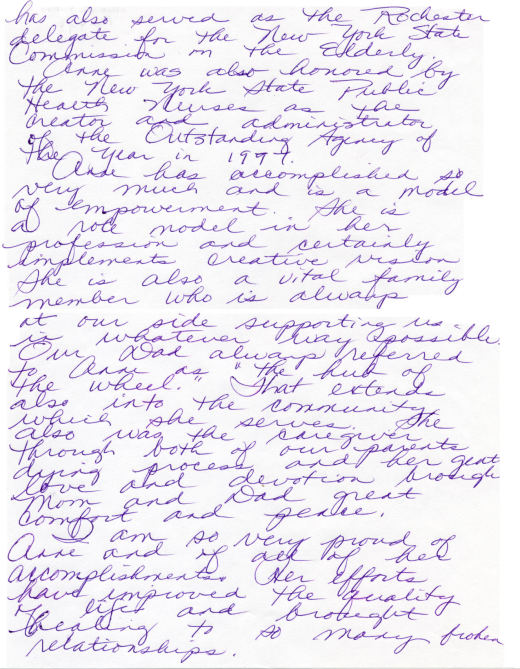 has also served as the Rochester
delegate for the New York State
Commission on the Elderly.
Anne was also honored by
the New York State Public
Health Nurses as the
creator and administrator
of the Outstanding Agency of
the Year in 1997.
Anne has accomplished so
very much and is a model
of empowerment. She is
a role model in her
profession and certainly
implements creative vision
She is also a vital family
member who is always
at our side supporting us
in whatever way possible.
Our Dad always referred
to Anne as "the hub of
the wheel." That extends
also into the community
which she serves. She
also was the caregiver
through both of our parents
dying process and her great
love and devotion brough
Mom and Dad great
comfort and peace.
I am so very proud of
Anne and of all of her
accomplishments. Her efforts
have improved the quality
of life and brought
healing to so many broken
relationships.